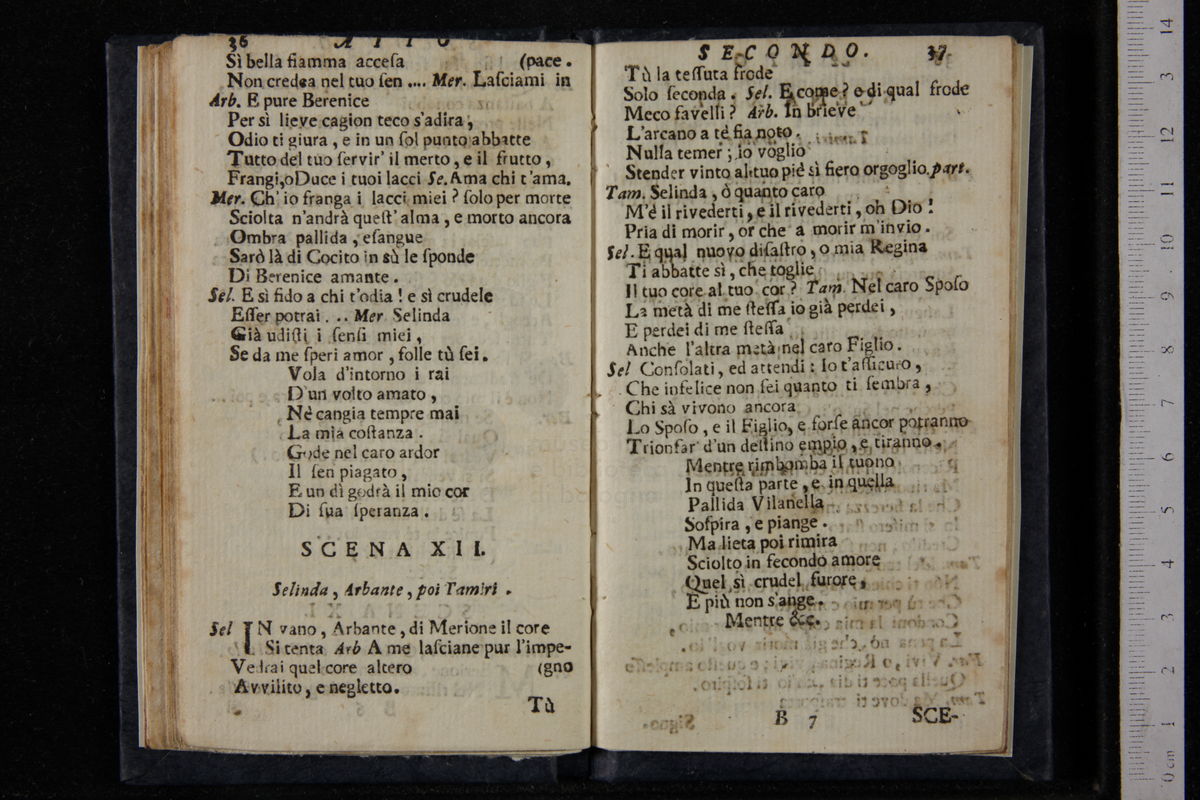 36 ATTO
Sì bella fiamma accesa (pace.
Non credea nel tuo sen .... Mer. Lasciami in
Arb. E pure Berenice
Per sì lieve cagion teco s'adira,
Odio ti giura, e in un sol punto abbatte
Tutto del tuo servir' il merto, e il frutto,
Frangi, o Duce i tuoi lacci Se. Ama chi t'ama.
Mer. Ch' io franga i lacci miei? solo per morte
Sciolta n'andrà quest' alma, e morto ancora
Ombra pallida, esangue
Sarò là di Cocito in sù le sponde
Di Berenice amante.
Sel. E sì fido a chi t'odia! e sì crudele
Esser potrai... Mer Selinda
Già udisti i sensi miei,
Se da me speri amor, folle tù sei.
Vola d'intorno i rai
D'un volto amato,
Nè cangia tempre mai
La mia costanza.
Gode nel caro ardor
Il sen piagato,
E un dì godrà il mio cor
Di sua speranza.
SCENA XII.
Selinda, Arbante, poi Tamiri.
Sel IN vano, Arbante, di Merione il core
Si tenta Arb A me lasciane pur l'impe-
Vedrai quel core altero (gno
Avvilito, e negletto.
Tù
SECONDO. 37
Tù la tessuta frode
Solo seconda. Sel. E come? e di qual frode
Meco favelli? Arb. In brieve
L'arcano a tè fia noto.
Nulla temer; io voglio
Stender vinto al tuo piè sì fiero orgoglio. part.
Tam. Selinda, ò quanto caro
M'è il rivederti, e il rivederti, oh Dio!
Pria di morir, or che a morir m'invio.
Sel. E qual nuovo disastro, o mia Regina
Ti abbatte sì, che toglie
Il tuo core al tuo cor? Tam. Nel caro Sposo
La metà di me stessa io già perdei,
E perdei di me stessa
Anche l'altra metà nel caro Figlio.
Sel Consolati, ed attendi: Io t'assicuro,
Che infelice non sei quanto ti sembra,
Chi sà vivono ancora
Lo Sposo, e il Figlio, e forse ancor potranno
Trionfar d'un destino empio, e tiranno.
Mentre rimbomba il tuono
In questa parte, e in quella
Pallida Vilanella
Sospira, e piange.
Ma lieta poi rimira
Sciolto in fecondo amore
Quel sì crudel furore,
E più non s'ange.
Mentre &c.
B 7 SCE-